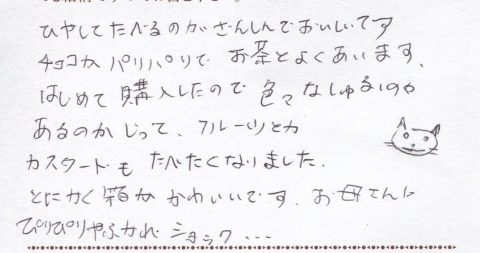 ひやしてたべるのがさんしんでおいしいです
チョコがパリパリでお茶とよくあいます、
はじめて購入したので色々なしゅるいのが
あるのかしって、フルーツとか
カスタードもたべたくなりました.
とにかく箱がかわいいです.お母さんに
ぴりぴりやぶかれショック...